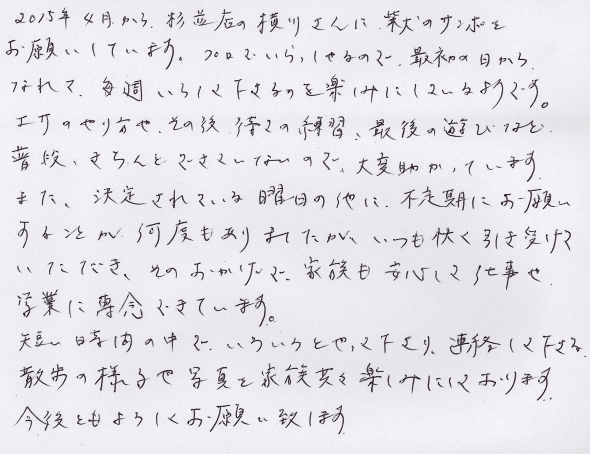 2015年4月から、杉並店の横川さんに、柴犬のサンポを
お願いしています。プロでいらっしゃるので、最初の日から、
なれて、毎週いらして下さるのを楽しみにしているようです。
エサのやり方や、その後、待ての練習、最後の遊びなど、
普段、きちんとできていないので、大変助かっています。
また、決定されている曜日の他に、不定期にお願い
することが、何度もありましたが、いつも快く引き受けて
いただき、そのおかげで、家族も安心して仕事や、
学業に専念できています。
短い時間の中で、いろいろとやって下さり、連絡して下さる、
散歩の様子や写真を家族共々楽しみにしております。
今後ともよろしくお願い致します